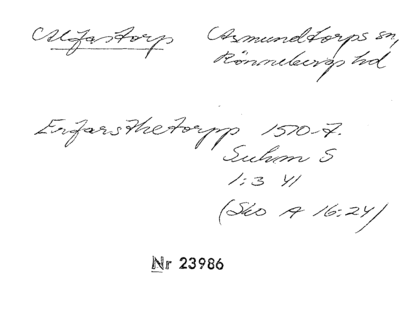 Alfastorp Asmundtorps sn,
Rönnebergs hd
Erfarsthetorpp 1570-7.
Suhm S
1:3 41
(Sko A 16:24)
Nr 23986